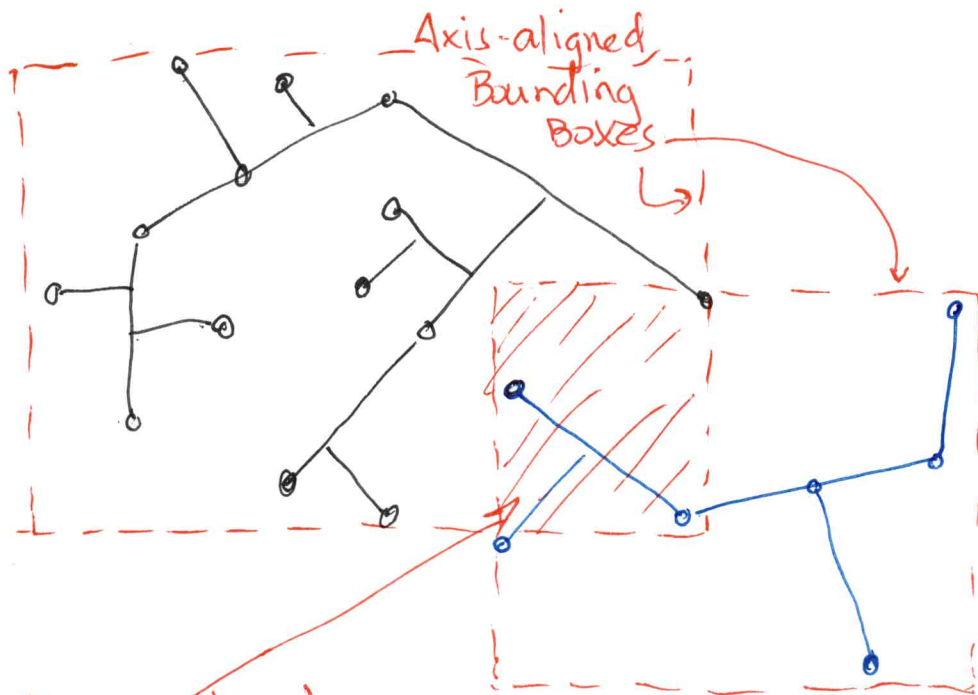 Axis-aligned
Bounding
Boxes